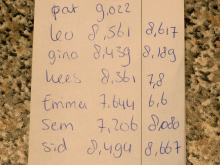 pat 9,022
leo 8,561 8,617
gino 8,439 8,189
kees 8,361 7,8
Emma 7.644 6,6
Sem 7,206 8,086
Sid 8,494 8,667